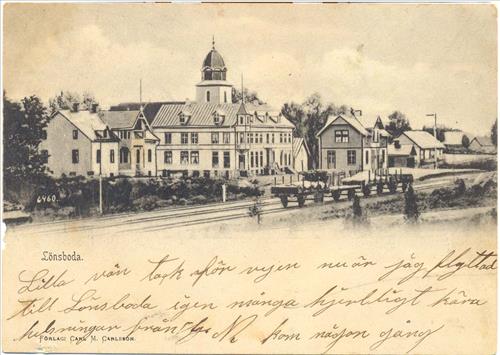 6460.
Lönsboda.
Lilla vän tack för vyen nu är jag flyttad
till Lönsboda igen många hjertligt kära
helsningar från
kom någon gång
FÖRLAG: CARL M. CARLSSON.